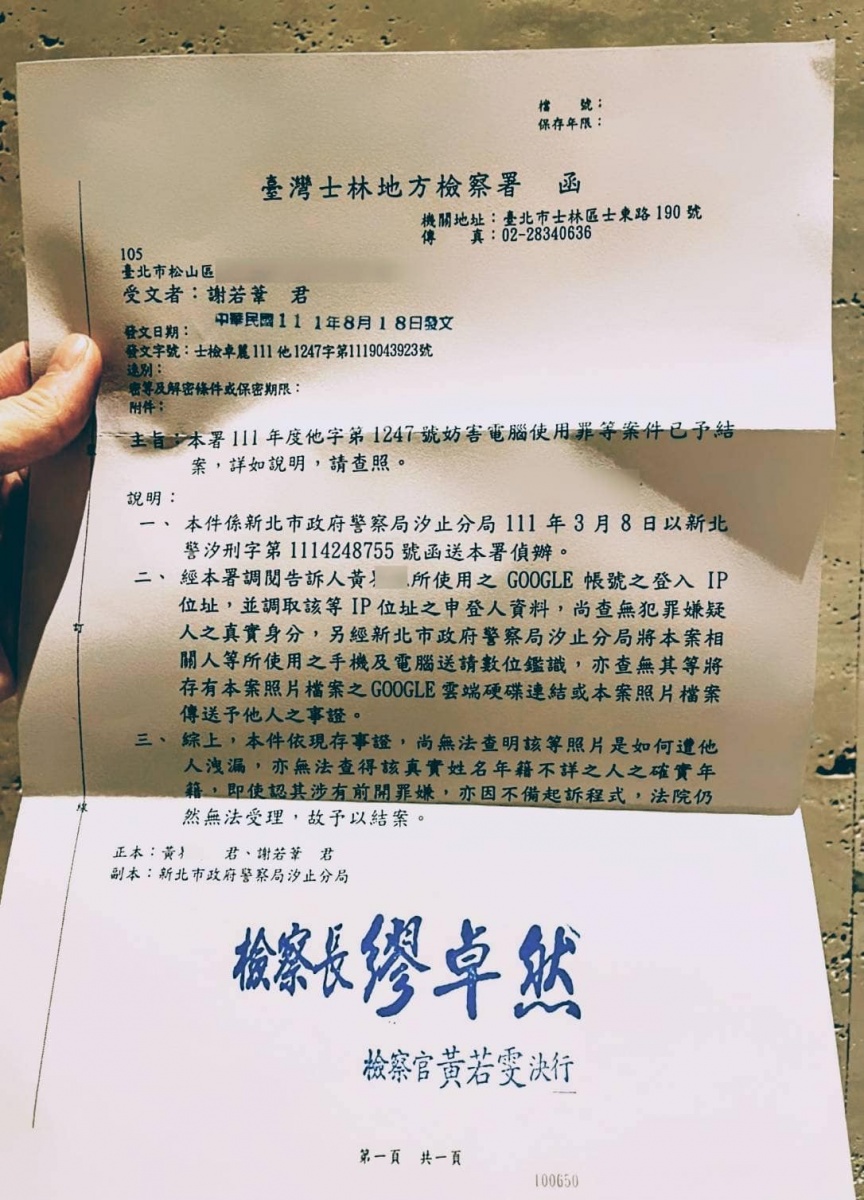 檔　　號：
保存年限：
臺灣士林地方檢察署　函
機關地址：臺北市士林區士東路190號
傳　　真：02-28340636
105
臺北市松山區
受文者：謝若葦　君
中華民國111年8月18日發文
發文日期：
發文字號：士檢卓麗111他1247字第1119043923號
速別：
密等及解密條件或保密期限：
附件：
主旨：本署111年度他字第1247號妨害電腦使用罪等案件已予結
案，詳如說明，請查照。
說明：
一、本件係新北市政府警察局汐止分局111年3月8日以新北
警汐刑字第1114248755號函送本署偵辦。
二、經本署調閱告訴人黃 所使用之GOOGLE帳號之登入IP
位址，並調取該等IP位址之申登人資料，尚查無犯罪嫌疑
人之真實身分，另經新北市政府警察局汐止分局將本案相
關人等所使用之手機及電腦送請數位鑑識，亦查無其等將
存有本案照片檔案之GOOGLE雲端硬碟連結或本案照片檔案
傳送予他人之事證。
三、綜上，本件依現存事證，尚無法查明該等照片是如何遭他
人洩漏，亦無法查得該真實姓名年籍不詳之人之確實年
籍，即使認其涉有前開罪嫌，亦因不備起訴程式，法院仍
然無法受理，故予以結案。
正本：黃　君、謝若葦　君
副本：新北市政府警察局汐止分局
訂
線
檢察長繆卓然
檢察官黃若雯決行
第一頁　共一頁
100650